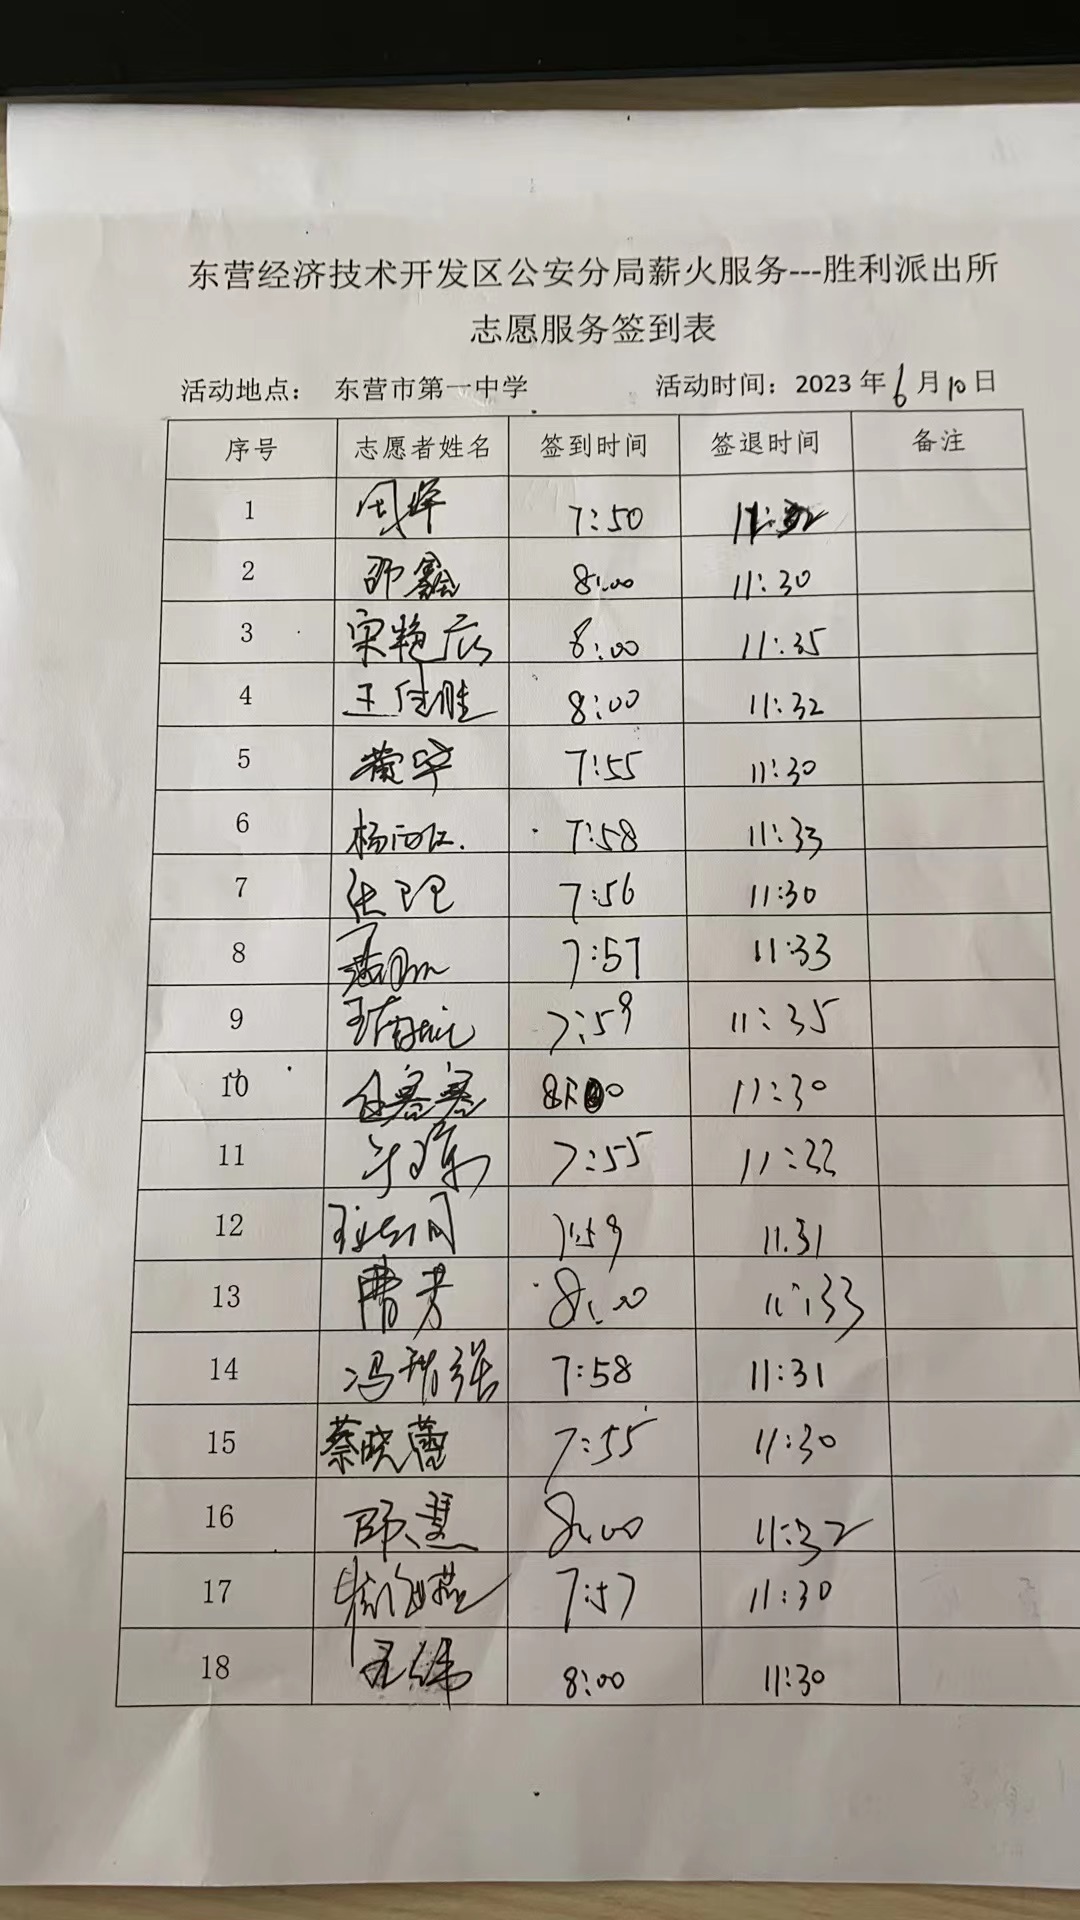 东营经济技术开发区公安分局薪火服务---胜利派出所
志愿服务签到表
活动地点： 东营市第一中学 活动时间：2023 年 6 月 10 日
序号 志愿者姓名 签到时间 签退时间 备注
1 7:50
2 邵鑫 8:00 11:30
3 宋艳 8:00 11:35
4 王佳胜 8:00 11:32
5 黄宇 7:55 11:30
6 杨 7:58 11:33
7 张理 7:56 11:30
8 7:57 11:33
9 7:59 11:35
10 11:30
11 7:55 11:33
12 7:59 11.31
13 曹芳 8:00 11:33
14 冯瑞强 7:58 11:31
15 蔡晓蕾 7:55 11:30
16 邵慧 8:00 11:32
17 7:57 11:30
18 8:00 11:30